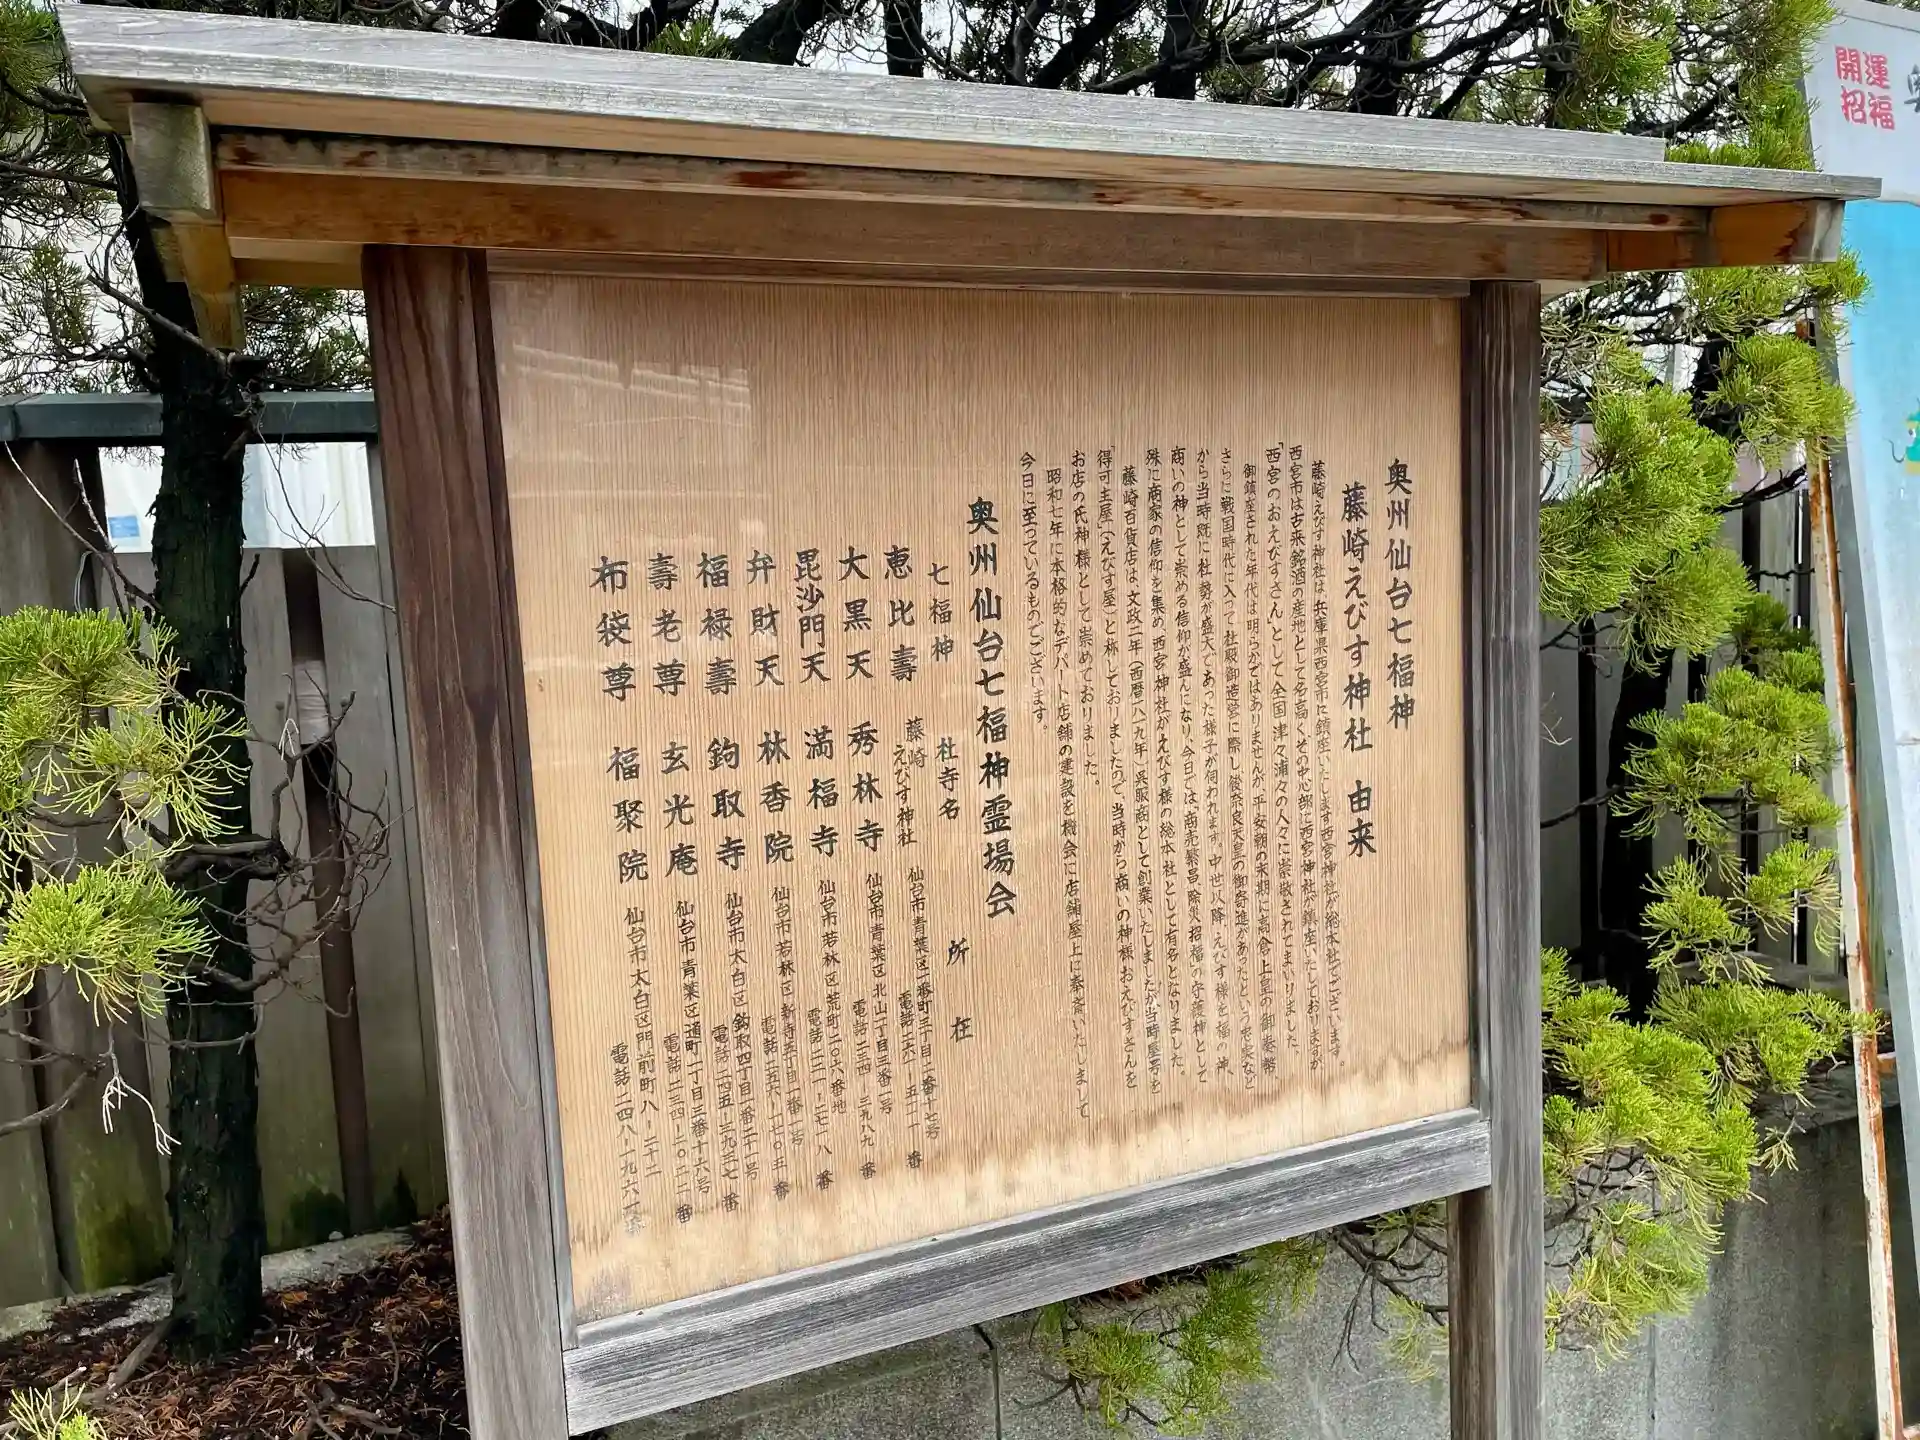 奥州仙台七福神
藤崎えびす神社 由来
藤崎えびす神社は、兵庫県西宮市に鎮座いたします西宮神社が総本社でございます。
西宮市は古来銘酒の産地として名高く、その中心部に西宮神社が鎮座いたしておりますが
「西宮のおえびすさん」として全国津々浦々の人々に崇敬されてまいりました。
御鎮座された年代は明らかではありませんが、平安朝の末期に高倉上皇の御奉幣、
さらに戦国時代に入って社殿御造営に際し後奈良天皇の御寄進があったという史実など
から当時既に社勢が盛大であった様子が伺われます。中世以降、えびす様を福の神、
商いの神として崇める信仰が盛んになり、今日では、商売繁昌、除災招福の守護神として
殊に商家の信仰を集め、西宮神社がえびす様の総本社として有名となりました。
藤崎百貨店は、文政二年(西暦一八一九年)呉服商として創業いたしましたが当時屋号を
「得可主屋」(えびす屋)と称しておりましたので、当時から商いの神様おえびすさんを
お店の氏神様として崇めておりました。
昭和七年に本格的なデパート店舗の建設を機会に店舗屋上に奉斎いたしまして
今日に至っているものでございます。
奥州仙台七福神霊場会
七福神 社寺名 所在
恵比壽 藤崎えびす神社 仙台市青葉区一番町三丁目二番十七号
電話二六一-五一一一番
大黒天 秀林寺 仙台市青葉区北山一丁目三番一号
電話二三四-三九八九番
毘沙門天 満福寺 仙台市若林区荒町二〇六番地
電話二二一-二七一八番
弁財天 林香院 仙台市若林区新寺五丁目一番一号
電話二五六-一七〇五番
福禄壽 鉤取寺 仙台市太白区鉤取四丁目一番二十一号
電話二四五-三九三七番
壽老尊 玄光庵 仙台市青葉区通町一丁目三番十六号
電話二三四-二〇二二番
布袋尊 福聚院 仙台市太白区門前町八-二十二
電話二四八-一九六一番
開運
招福